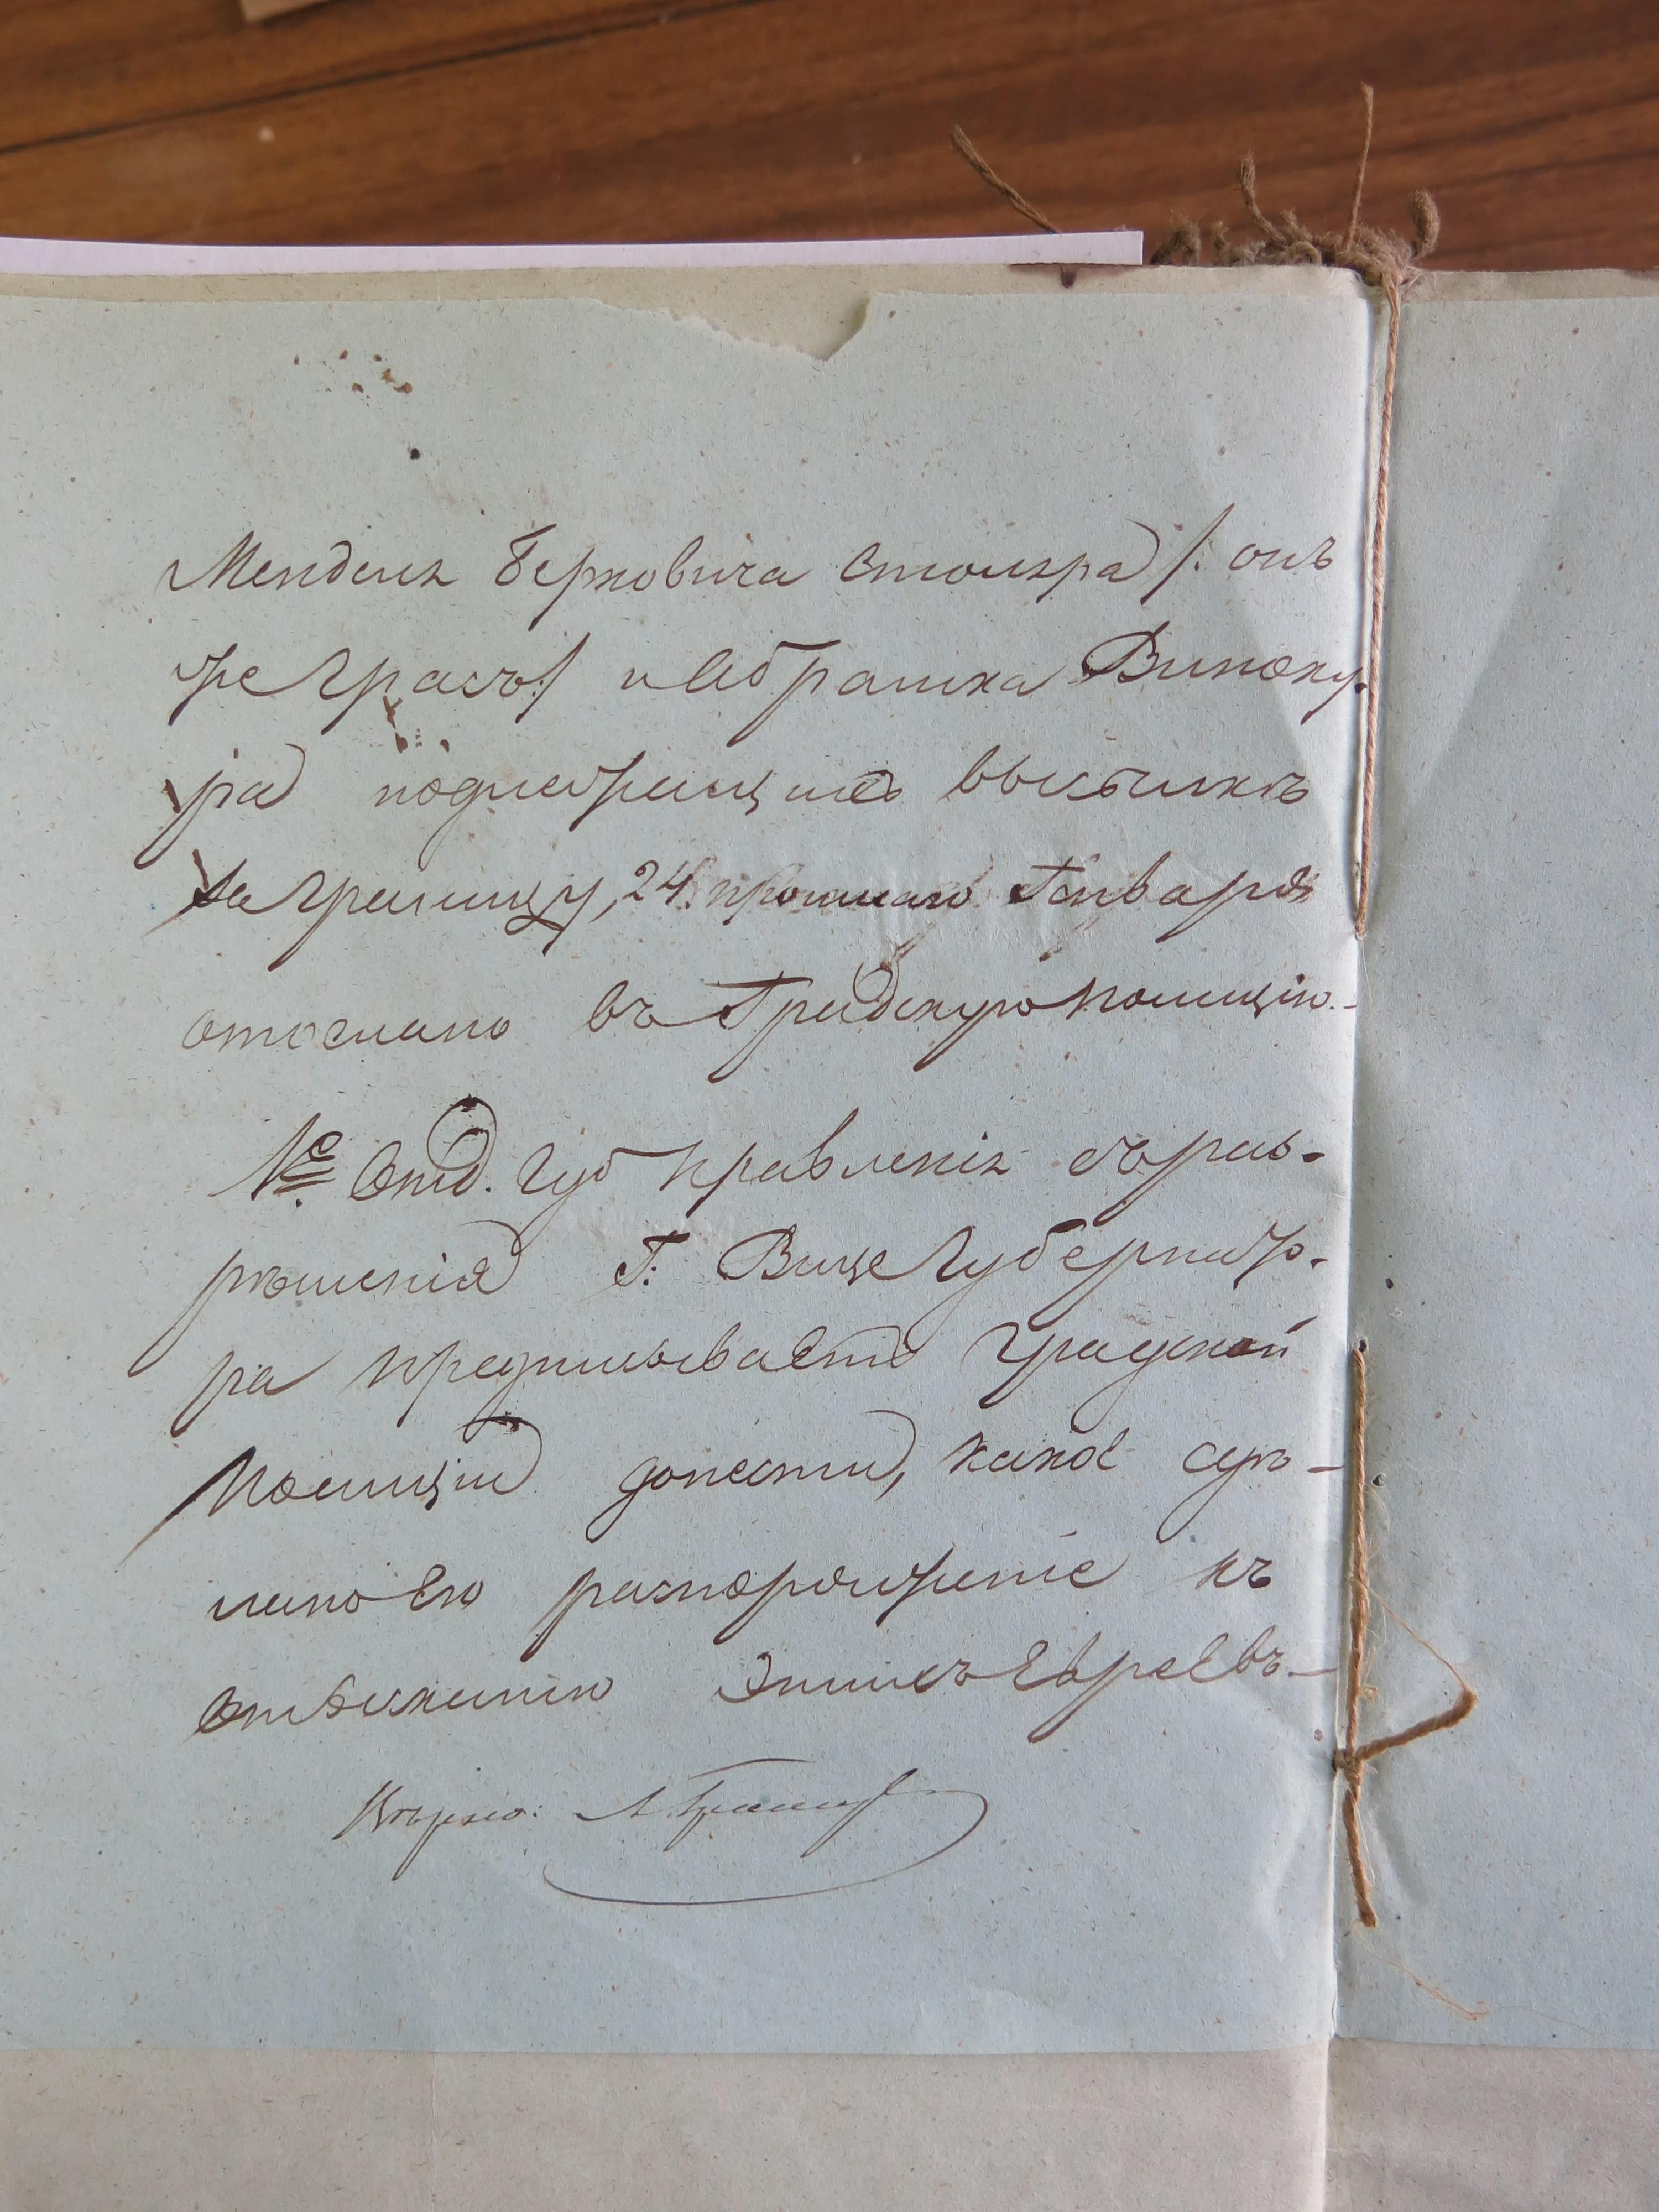 Менделя Берковича Столяра /: онъ
же Грасъ :/ и Абрамка Виноку-
ра подлежащихъ высылкѣ
за границу, 24. прошлаго Генваря
отослано въ Градскую Полицію. —
№ Отд. Губ Правленія съ раз-
рѣшенія Г. Вице Губернато-
ра предписываетъ Градской
Полиціи донести, какое сдѣ-
лано ею распоряженіе къ
отысканію этихъ Евреевъ. —
Вѣрно: